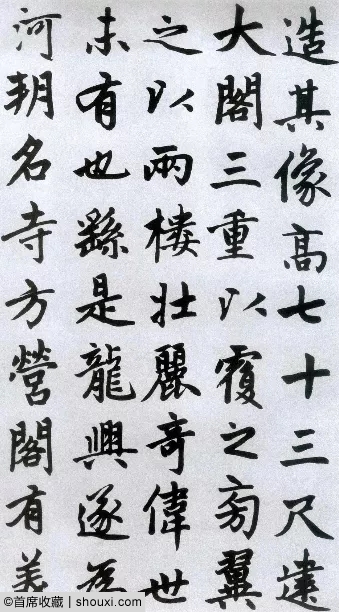 造其像高七十三尺建
大閣三重以覆之旁翼
之以兩樓壯麗奇偉世
未有也繇是龍興遂為
河朔名寺方營閣有美
©首席收藏 | shouxi.com